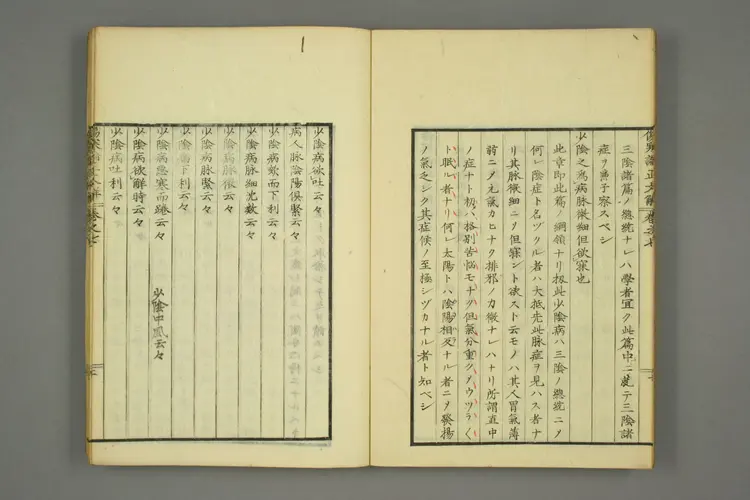 三陰諸篇ノ總統ナレハ學者宜ク此篇中ニ就テ三陰諸
症ヲ弁子察スベシ
少陰之為病脉微細但欲寐也
此章即此篇ノ綱領ナリ扨此少陰病ハ三陰ノ總統ニヲ
何レ陰症ト名ヅクル者ハ大抵先此脉症ヲ見ハス者ナ
リ其脉微細ニヲ但寐ント欲スト云モノハ其人胃氣薄
弱ニヲ元氣カヒナク排邪ノ力微ナレハナリ所謂直中
ノ症ナト扨ハ格別苦悩モナク但氣分重クウツラく
ト眠ル者ナリ何レ太陽トハ陰陽相反ナル者ニヲ發揚
ノ氣乏シク其症候ノ至極シヅカナル者ト知ベシ
少陰病欲吐云々
病人脉陰陽俱緊云々
少陰病欬而下利云々
少陰病脉細沈數云々
少陰病脉微云々
少陰病脉緊云々
少陰病下利云々
少陰病惡寒而踡云々
少陰中風云々
少陰病欲解時云々
少陰病吐利云々